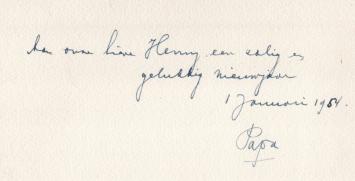 Aan onze lieve Henny een zalig en
gelukkig nieuwjaar
1 Januari 1954.
Papa